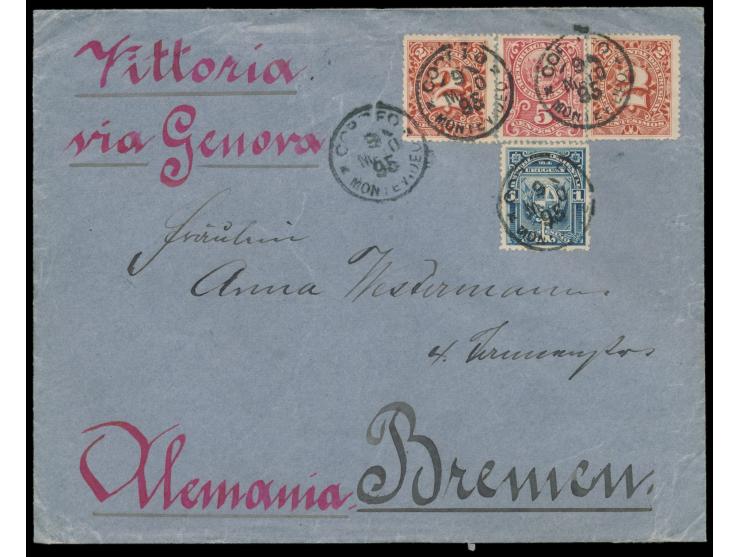 Vittoria
via Genova
CORREOS
9
MONTEVIDEO
95
5
1
Fräulein
Anna Westermann
Alemania. Bremen.